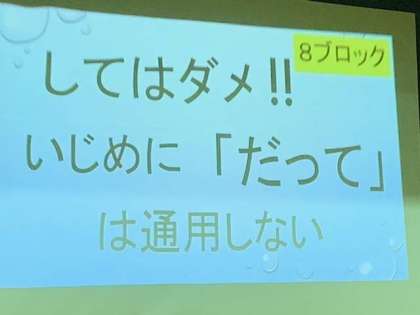 8ブロック
してはダメ!!
いじめに「だって」
は通用しない